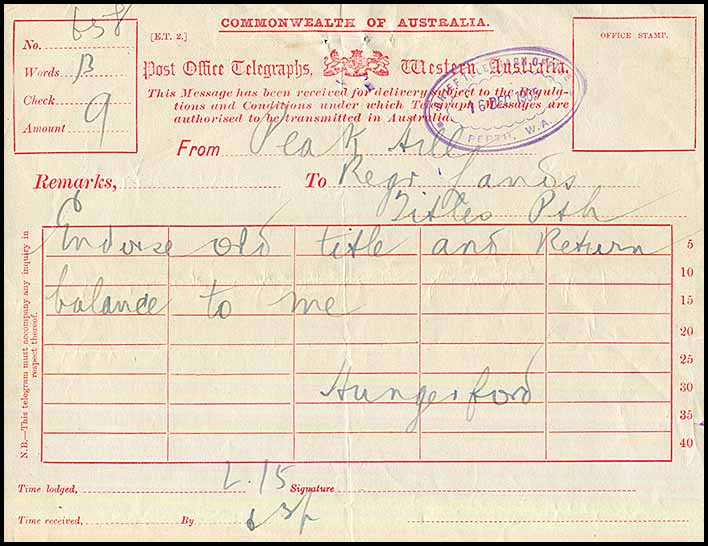 COMMONWEALTH OF AUSTRALIA.
[E.T. 2.]
No. 658
Words 13
Check
Amount 9
OFFICE STAMP.
Post Office Telegraphs, Western Australia.
This Message has been received for delivery subject to the Regula-
tions and Conditions under which Telegraph Messages are
authorised to be transmitted in Australia.
16 DEC
PERTH, W.A.
From Peak Hill
Remarks, To Regr Lands
Titles Pth
Endorse old title and Return
balance to me
Hungerford
5
10
15
20
25
30
35
40
N.B.—This telegram must accompany any inquiry in
respect thereof.
Time lodged, 2.15 Signature
Time received, By